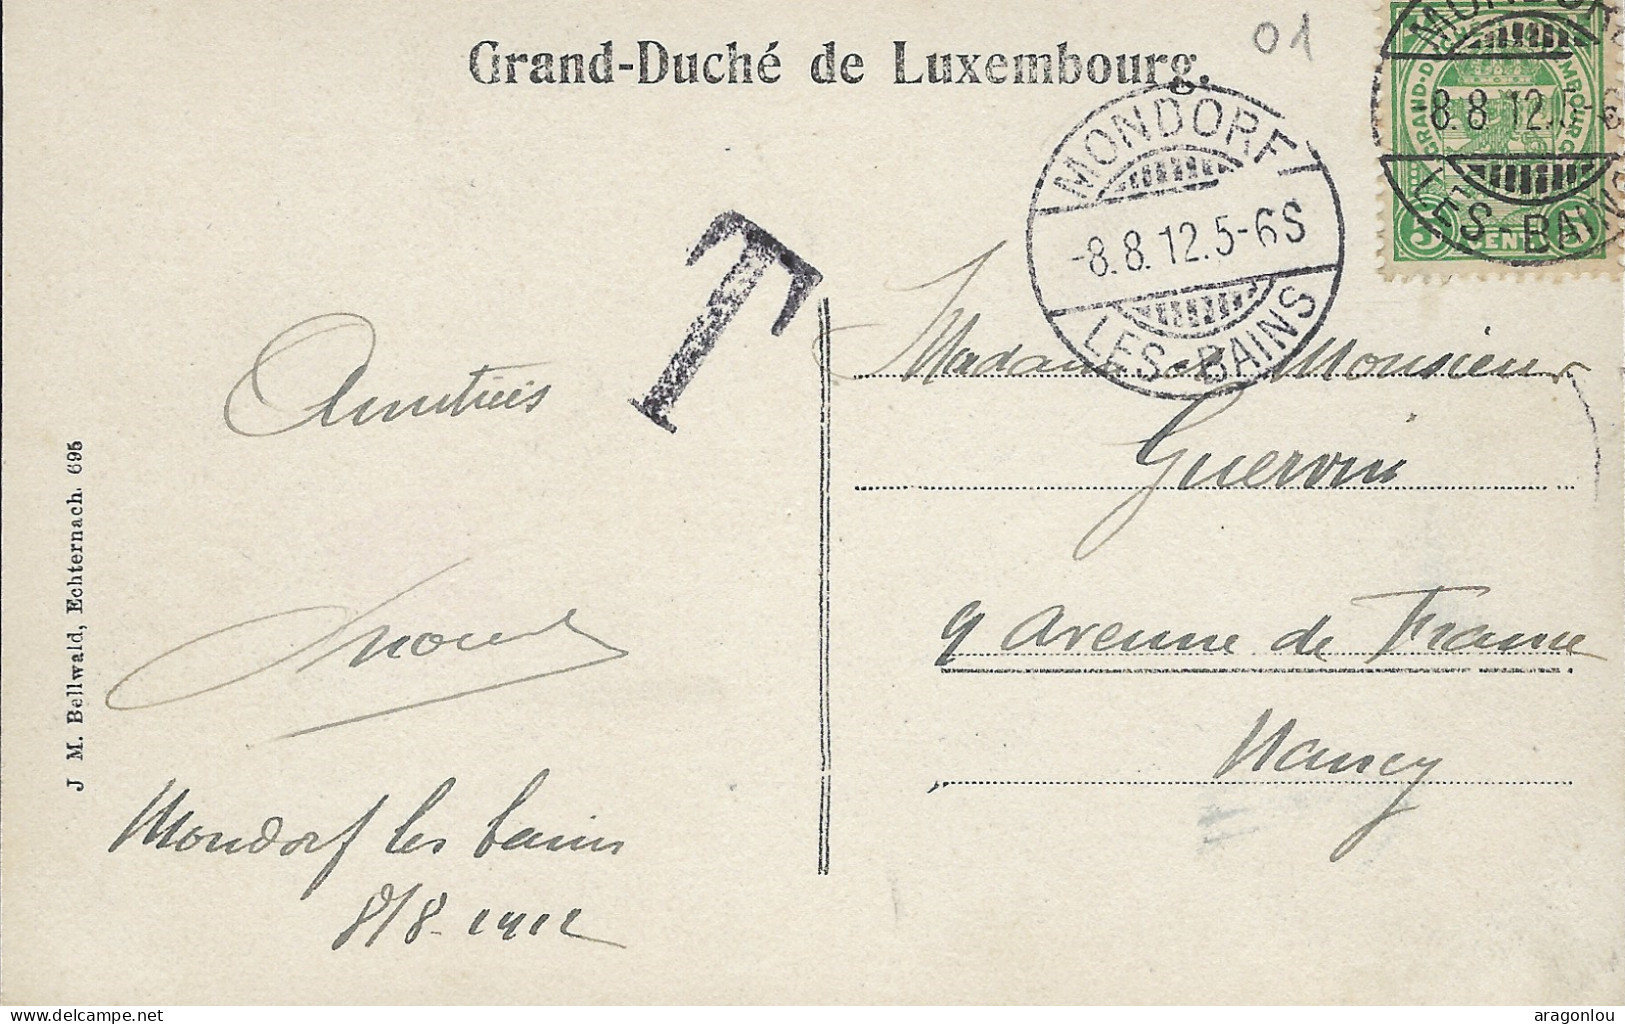 01
Grand-Duché de Luxembourg.
MONDORF
-8.8.12.5-6S
LES-BAINS
MONDORF
8.8.12.5-6
LES-BAINS
GRAND-D
MBOURG
5 CENT 5
T
Amitiés
Madame et Monsieur
Guervin
9 Avenue de France
Nancy
Mondorf les bains
8/8-1912
J M. Bellwald, Echternach. 695
delcampe.net
aragonlou